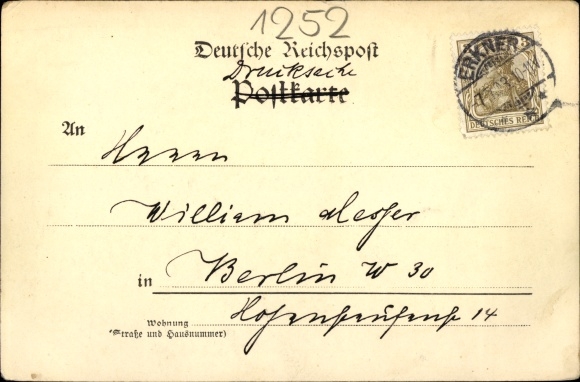 1252
Deutsche Reichspost
Drucksache
Postkarte
ERKNER
DEUTSCHES REICH
An
Herrn
William Messer
in Berlin W 30
Hohenstaufenstr 14
Wohnung
(Straße und Hausnummer)